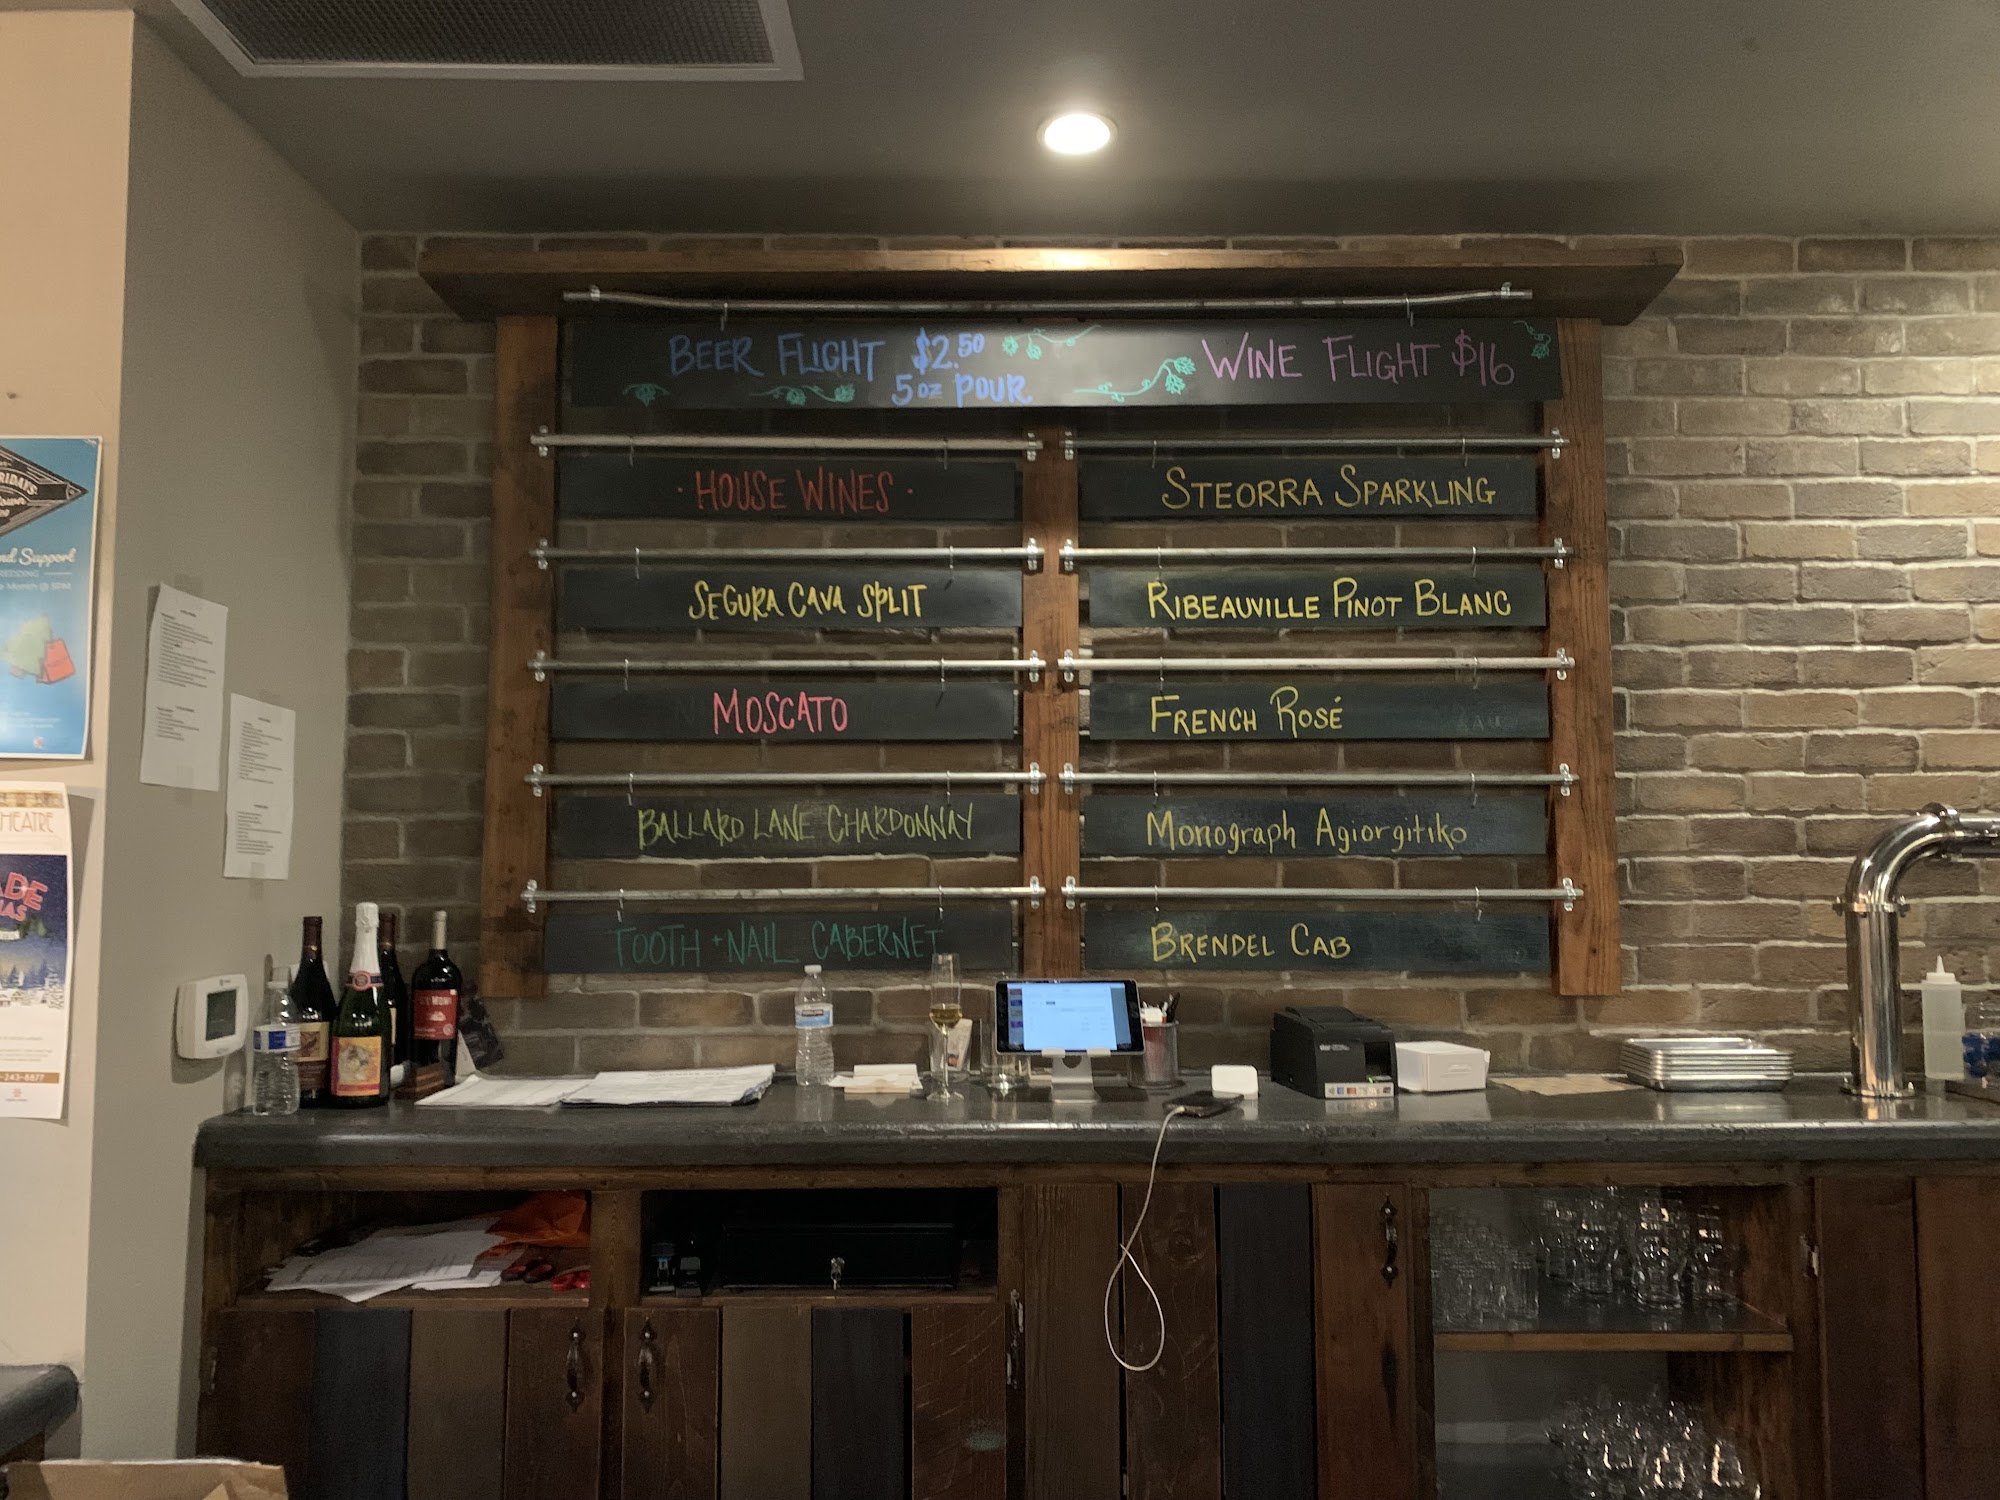 BEER FLIGHT $2.50
5oz POUR
WINE FLIGHT $16
· HOUSE WINES ·
SEGURA CAVA SPLIT
MOSCATO
BALLARD LANE CHARDONNAY
TOOTH + NAIL CABERNET
STEORRA SPARKLING
RIBEAUVILLE PINOT BLANC
FRENCH ROSÉ
Monograph Agiorgitiko
BRENDEL CAB
RIDAYS
nd Support
REDDING
Month @ 5PM
HEATRE
ADE
MAS
-243-8877